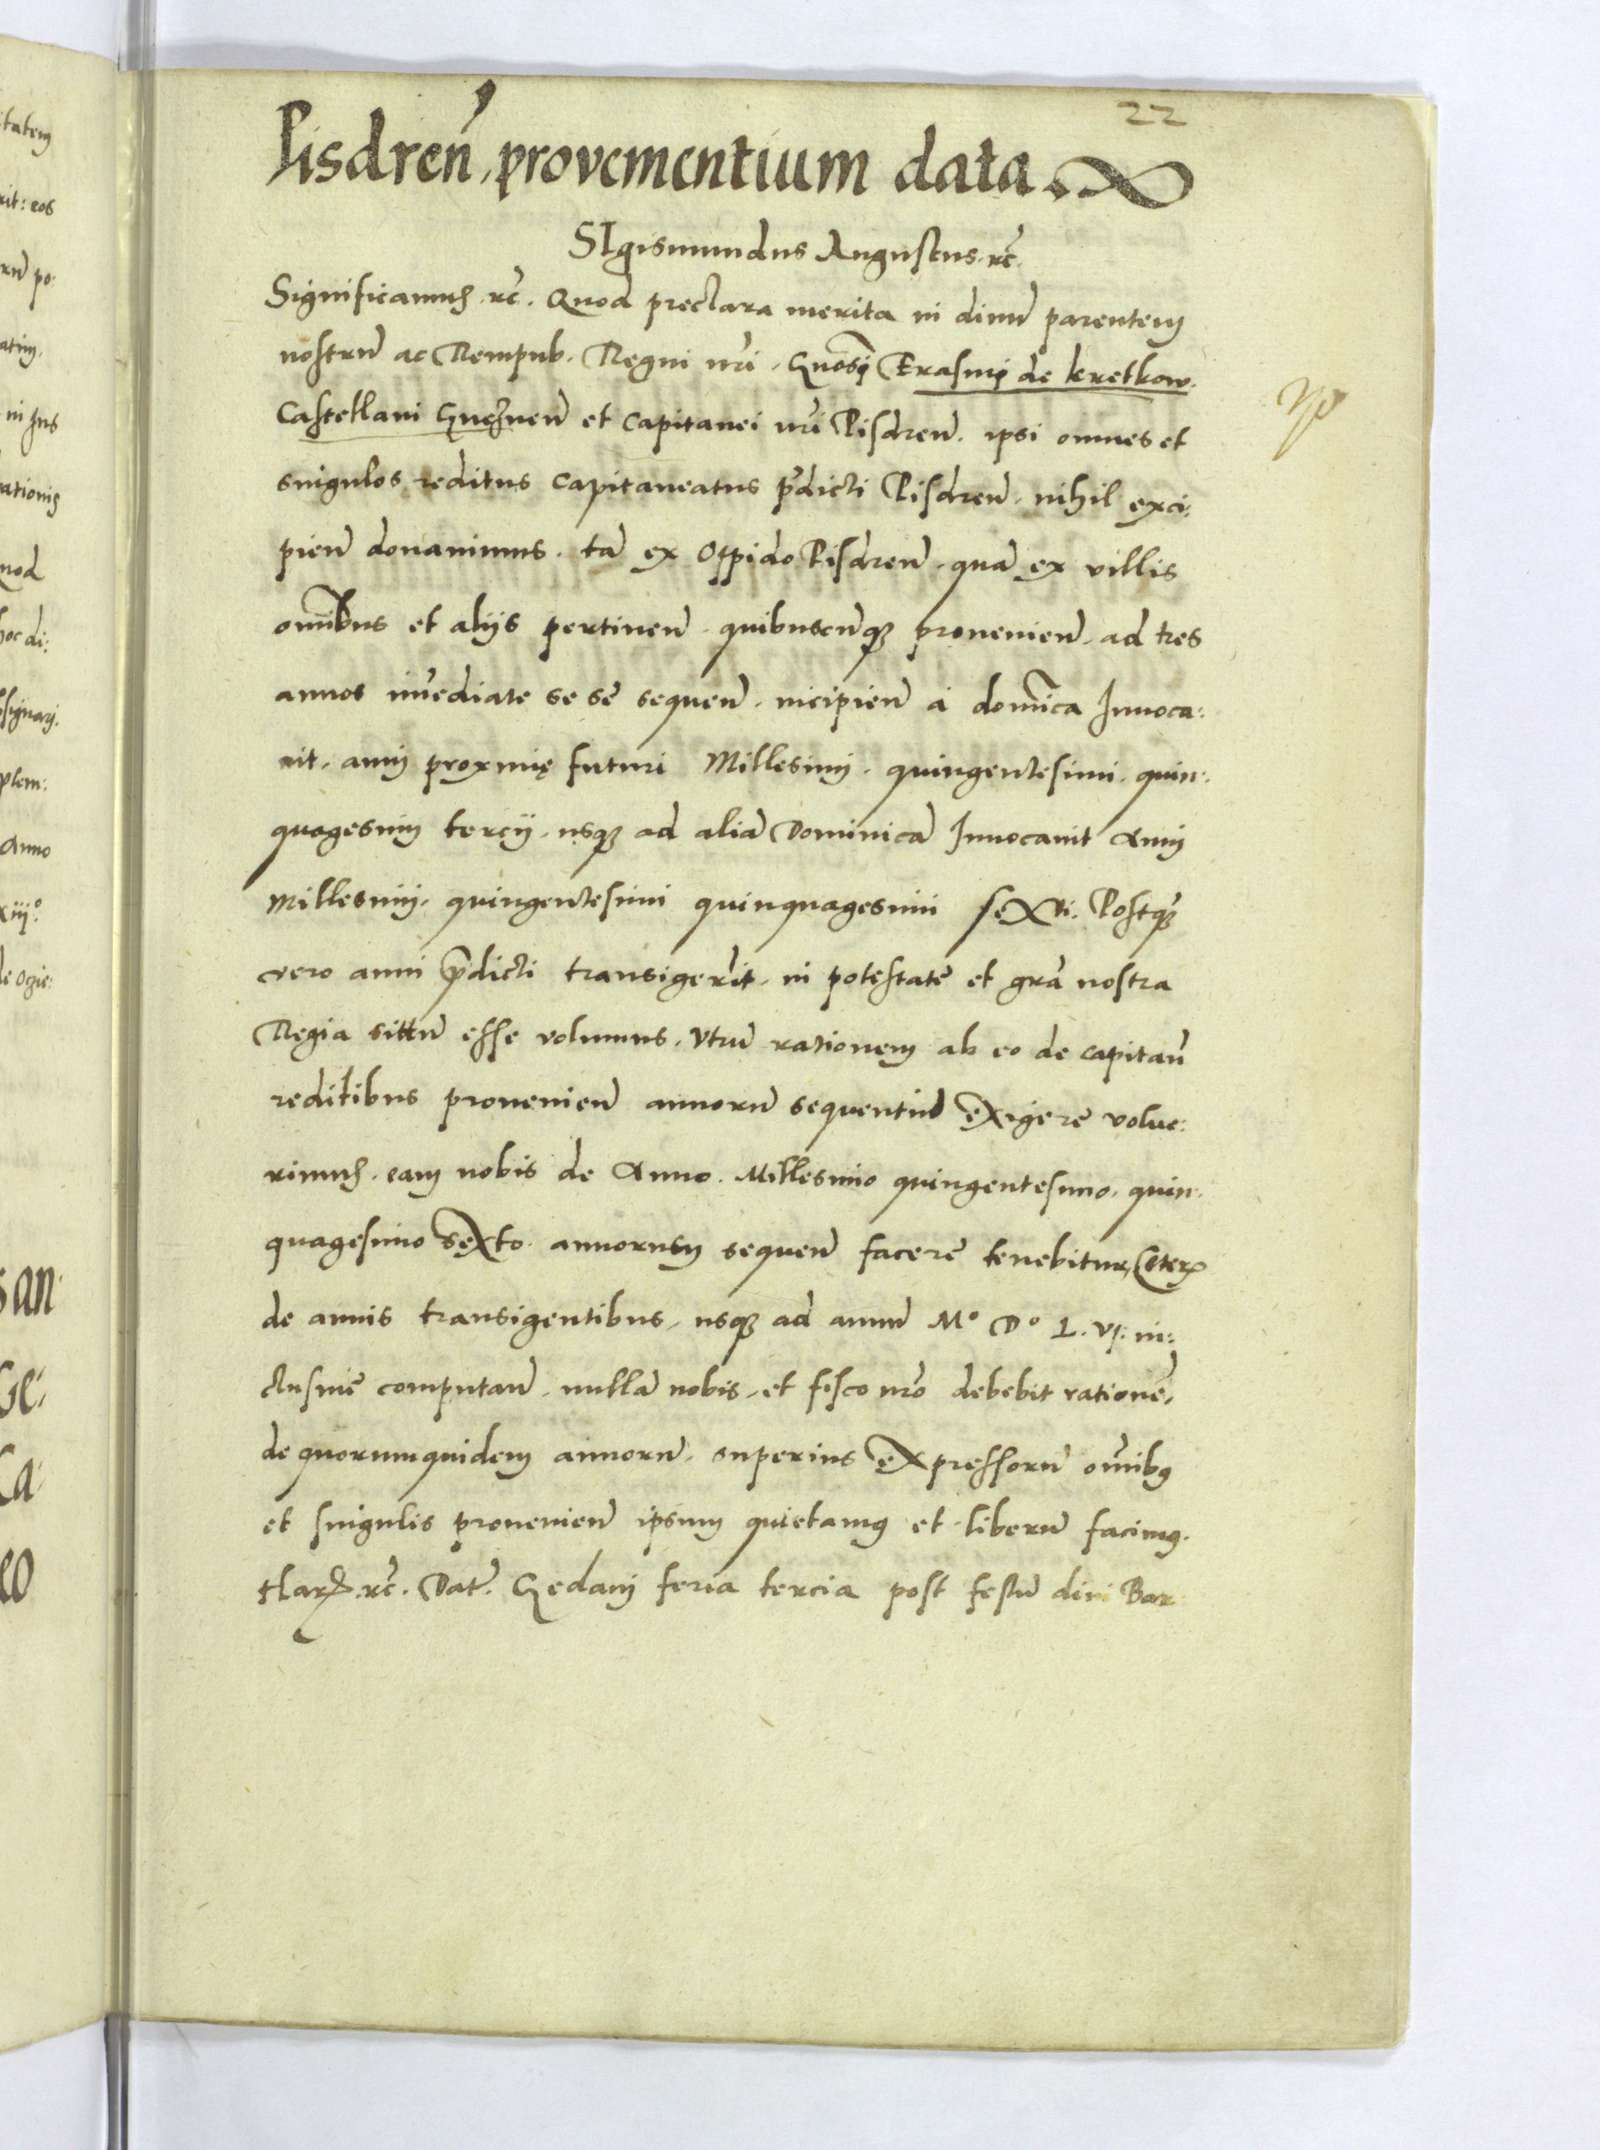 22
Pisdreñ. provementium data.
SIgismundus Augustus. rc̃.
Significamus. rc̃. Quod preclara merita in diuũ parentem
nostrũ ac Rempub. Regni nri. Gnosi Erasmi de kretkow.
Castellani Gneznen̄ et Capitanei nri Pisdren̄. ipsi omnes et
singulos reditus Capitaneatus p̃dicti Pisdren̄. nihil exci:
pien̄ donauimus. tã ex Oppido Pisdren̄. quã ex villis
om̃ibus et alijs pertinen̄. quibuscũq₃ prouenien̄. ad tres
annos im̃ediate se se sequen̄. incipien̄ a domĩca Inuoca:
uit. anni proxime futuri Millesimi. quingentesimi. quin:
quagesimi tercij. usq₃ ad aliã Dominicã Inuocauit Anni
Millesimi. quingentesimi quinquagesimi sexti. Postq̃
vero anni p̃dicti transigerĩt. in potestatẽ et grã nostra
Regia sittũ esse volumus. Vtrũ rationem ab eo de capitan̄
reditibus prouenien̄ annorũ sequentiũ exigere volue:
rimus. eam nobis de Anno. Millesimo quingentesimo. quin:
quagesimo sexto. annorum sequen̄ facere tenebitur, Ceterũ
de annis transigentibus, usq₃ ad annũ Mº Dº L. vj. in:
clusiue computan̄. nullã nobis, et fisco nro debebit rationẽ,
de quorumquidem annorũ. superius expressorũ om̃ibus
et singulis prouenien̄ ipsum quietamus et liberũ facimus.
Harũ. rc̃. Dat̃. Gedani feria tercia post festũ diui Bar